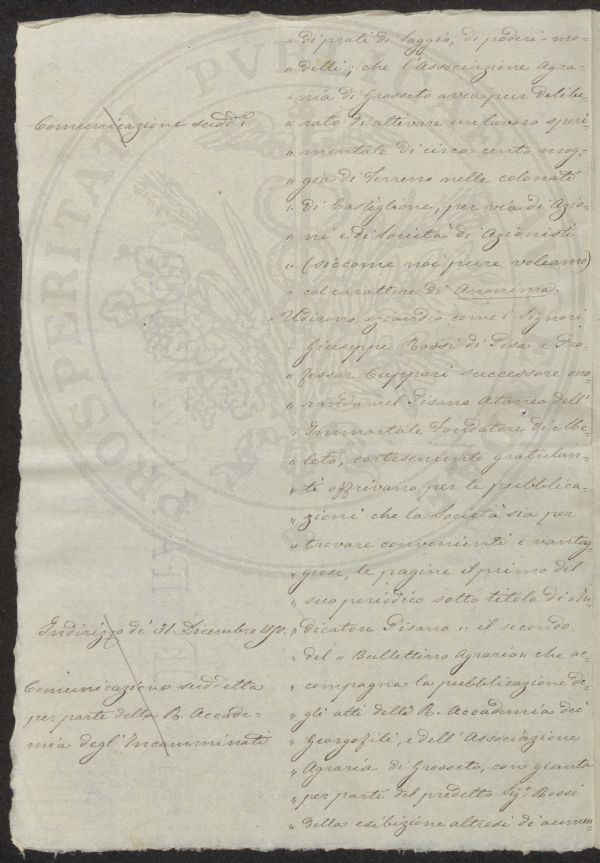 " di prati di saggio, di poderi-mo-
" delli; che l'Associazione Agra-
" ria di Grosseto avea pur delibe-
" rato di attivare un lavoro speri-
" mentale di circa cento mog-
" gia di Terreno nelle colonati
" di Castiglione, per via di Azio-
" ni e di Società di Azionisti
" (siccome noi pure voleamo)
" col carattere di Anonima.
" Udirono eziandio come i Signori
" Giuseppe Rossi di Pisa e Pro-
" fessor Cuppari successore ono-
" rando nel Pisano Ateneo dell'
" Immortale Fondatore di Me-
" leto, cortesemente gratulan-
" ti offrivano per le pubblica-
" zioni che la Società sia per
" trovare convenienti e vantag-
" giose, le pagine il primo del
" suo periodico sotto titolo di "In-
" dicatore Pisano" il secondo
del "Bullettino Agrario" che ac-
" compagna la pubblicazione de-
" gli atti della R. Accademia dei
" Georgofili, e dell'Associazione
" Agraria di Grosseto, con giunta
" per parte del predetto Sigr. Rossi
" della esibizione altresì di aumen
Comunicazione sudd.
Indirizzo de' 31. Dicembre
Comunicazione suddetta
per parte della R. Accade-
mia degl'Incamminati
PROSPERITATI PVB